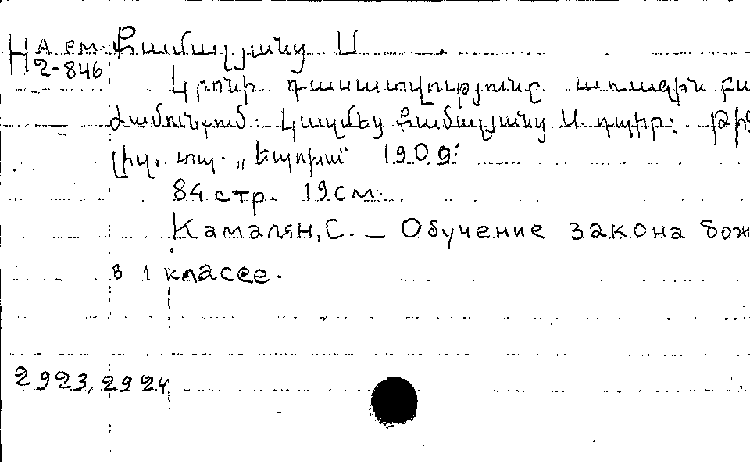 На ем Քամալյանց Ս
2-846
Կրոնի դասատվությունը առաջին բա
ժանմունքում. Կազմեց Քամալյանց Ս. դպիր: Թիֆ
լիս, տպ. „Էպոխա" 1909:
84 стр. 19 см.
Камалян, С. — Обучение закона бож
в 1 классе.
2923, 2924